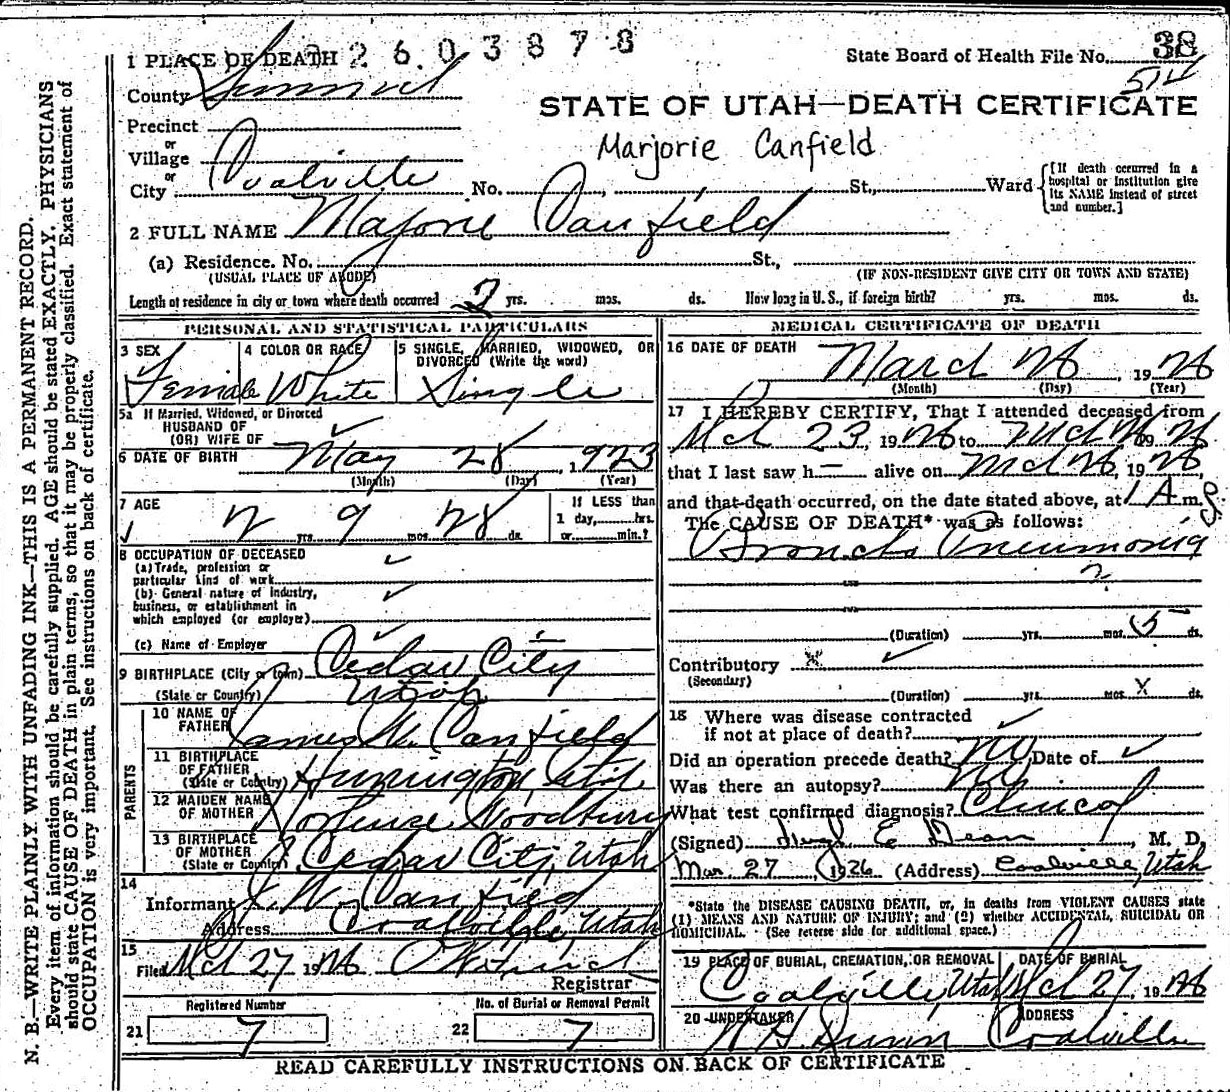 2603878
State Board of Health File No. 38
514
1 PLACE OF DEATH
County Summit
STATE OF UTAH—DEATH CERTIFICATE
Precinct
or
Village
or
City Coalville No. St., Ward
Marjorie Canfield
[If death occurred in a
hospital or institution give
its NAME instead of street
and number.]
2 FULL NAME Marjorie Canfield
(a) Residence. No. St.,
(USUAL PLACE OF ABODE) (IF NON-RESIDENT GIVE CITY OR TOWN AND STATE)
Length of residence in city or town where death occurred 2 yrs. mos. ds. How long in U. S., if foreign birth? yrs. mos. ds.
PERSONAL AND STATISTICAL PARTICULARS
3 SEX 4 COLOR OR RACE 5 SINGLE, MARRIED, WIDOWED, OR
DIVORCED (Write the word)
Female White Single
5a If Married, Widowed, or Divorced
HUSBAND OF
(OR) WIFE OF
6 DATE OF BIRTH May 28, 1923
(Month) (Day) (Year)
7 AGE If LESS than
2 yrs. 9 mos. 28 ds. 1 day, hrs.
or min.?
8 OCCUPATION OF DECEASED
(a) Trade, profession or
particular kind of work
(b) General nature of industry,
business, or establishment in
which employed (or employer)
(c) Name of Employer
9 BIRTHPLACE (City or town) Cedar City
(State or Country) Utah
PARENTS
10 NAME OF
FATHER James W. Canfield
11 BIRTHPLACE
OF FATHER
(State or Country) Utah
12 MAIDEN NAME
OF MOTHER Hortense Woodbury
13 BIRTHPLACE
OF MOTHER
(State or Country) Cedar City, Utah
14
Informant J. W. Canfield
Address Coalville, Utah
15
Filed Mch 27 1926
Registrar
Registered Number No. of Burial or Removal Permit
21 7 22 7
MEDICAL CERTIFICATE OF DEATH
16 DATE OF DEATH
March 26, 1926
(Month) (Day) (Year)
17 I HEREBY CERTIFY, That I attended deceased from
Mch 23, 1926 to Mch 26 1926
that I last saw h— alive on Mch 26, 1926,
and that death occurred, on the date stated above, at 1 A m.
The CAUSE OF DEATH* was as follows:
Broncho Pneumonia
(Duration) yrs. mos. 5 ds.
Contributory x
(Secondary)
(Duration) yrs. mos. x ds.
18 Where was disease contracted
if not at place of death?
Did an operation precede death? no Date of
Was there an autopsy? no
What test confirmed diagnosis? Clinical
(Signed) E Dean, M. D.
Mar. 27, 1926 (Address) Coalville, Utah
*State the DISEASE CAUSING DEATH, or, in deaths from VIOLENT CAUSES state
(1) MEANS AND NATURE OF INJURY; and (2) whether ACCIDENTAL, SUICIDAL OR
HOMICIDAL. (See reverse side for additional space.)
19 PLACE OF BURIAL, CREMATION, OR REMOVAL DATE OF BURIAL
Coalville, Utah Mch 27, 1926
20 UNDERTAKER ADDRESS
Coalville
READ CAREFULLY INSTRUCTIONS ON BACK OF CERTIFICATE
N. B.—WRITE PLAINLY WITH UNFADING INK—THIS IS A PERMANENT RECORD.
Every item of information should be carefully supplied. AGE should be stated EXACTLY. PHYSICIANS
should state CAUSE OF DEATH in plain terms, so that it may be properly classified. Exact statement of
OCCUPATION is very important. See instructions on back of certificate.